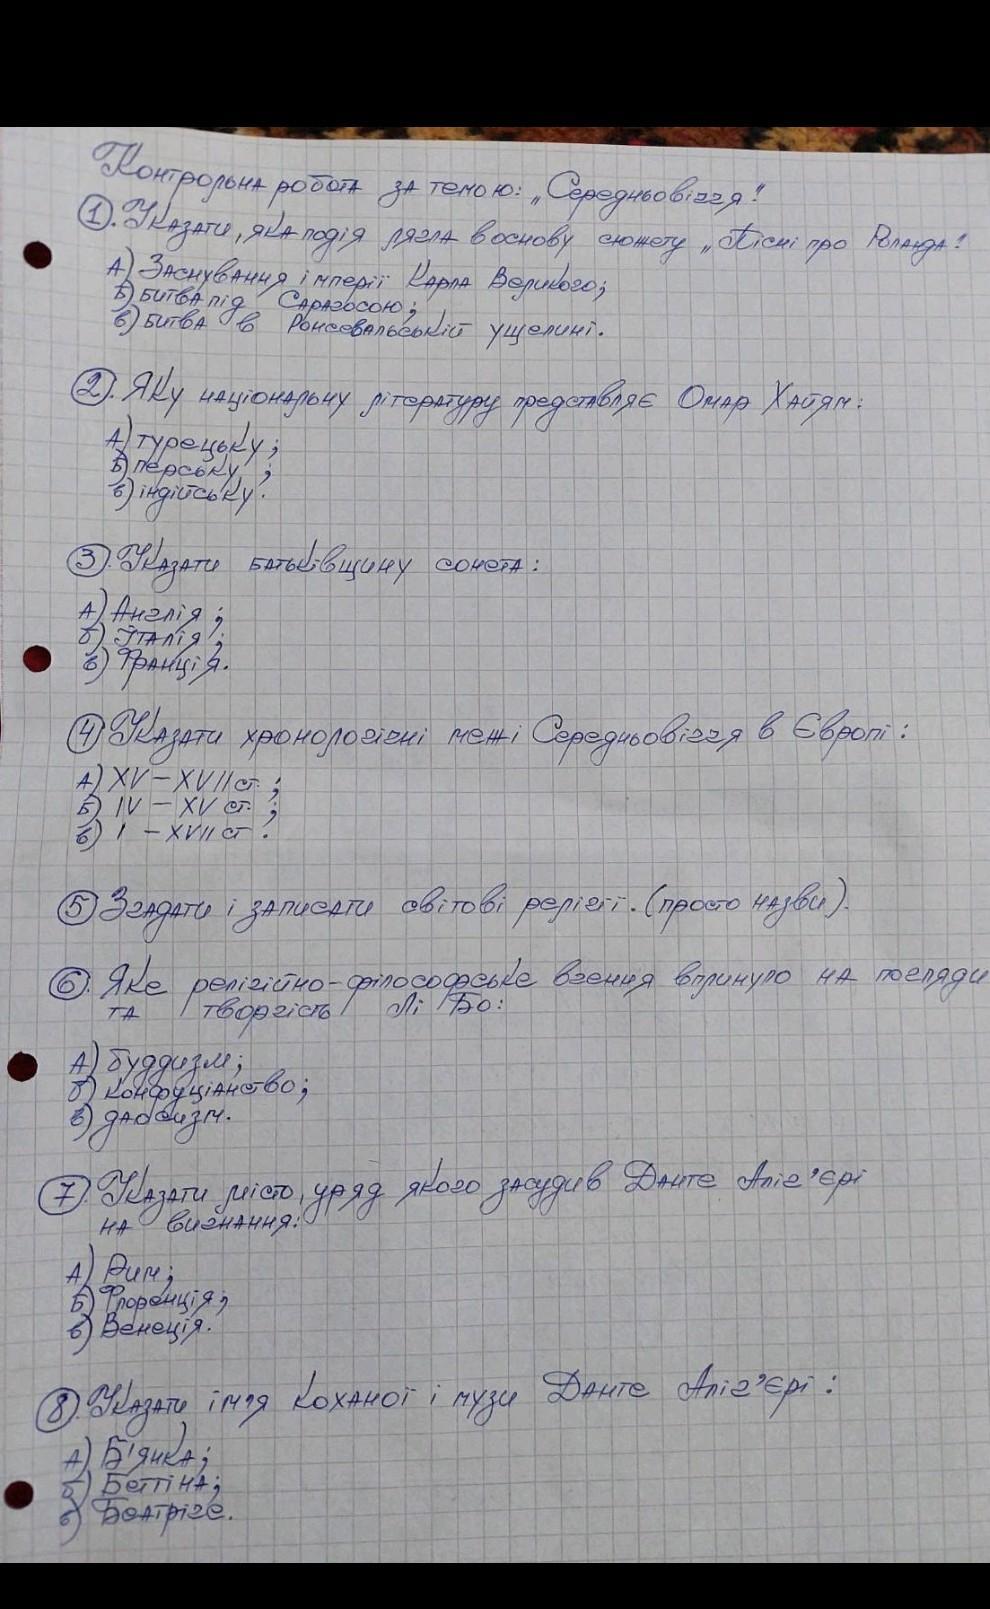 Контрольна робота за темою: „Середньовіччя".
①. Указати, яка подія лягла в основу сюжету „Пісні про Роланда".
А) Заснування імперії Карла Великого;
Б) битва під Сарагосою;
в) битва в Ронсевальській ущелині.
②. Яку національну літературу представляє Омар Хайям:
А) турецьку;
Б) перську;
в) індійську.
③. Указати батьківщину сонета:
А) Англія;
б) Італія;
в) Франція.
④ Указати хронологічні межі Середньовіччя в Європі:
А) XV – XVII ст.;
Б) IV – XV ст.;
в) I – XVII ст.
⑤ Згадати і записати світові релігії. (просто назви).
⑥. Яке релігійно-філософське вчення вплинуло на погляди
та творчість Лі Бо:
А) буддизм;
б) конфуціанство;
в) даосизм.
⑦. Указати місто, уряд якого засудив Данте Аліг'єрі
на вигнання:
А) Рим;
Б) Флоренція;
в) Венеція.
⑧. Указати ім'я коханої і музи Данте Аліг'єрі:
А) Б'янка;
б) Беттіна;
в) Беатріче.